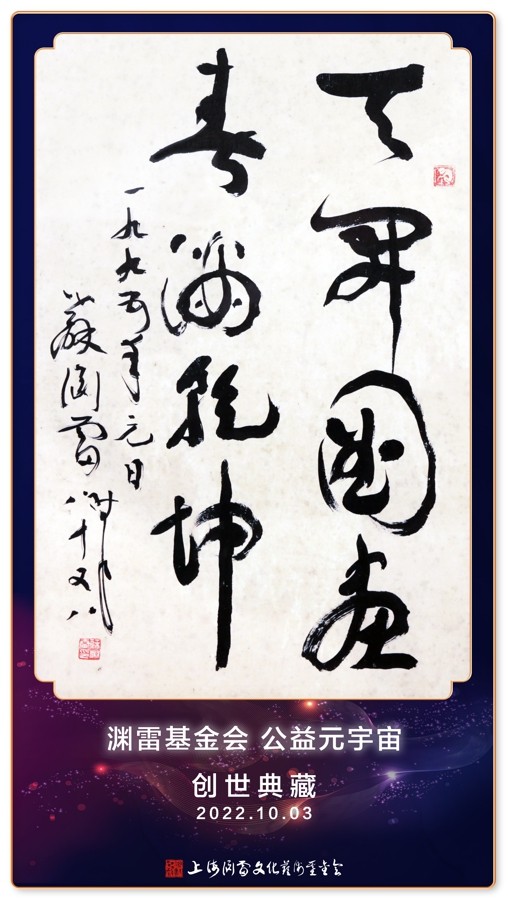 天開圖畫
春滿乾坤
一九九五年元日
蘇渊雷時年八十又八
渊雷基金会 公益元宇宙
创世典藏
2022.10.03
上海渊雷文化艺术基金会